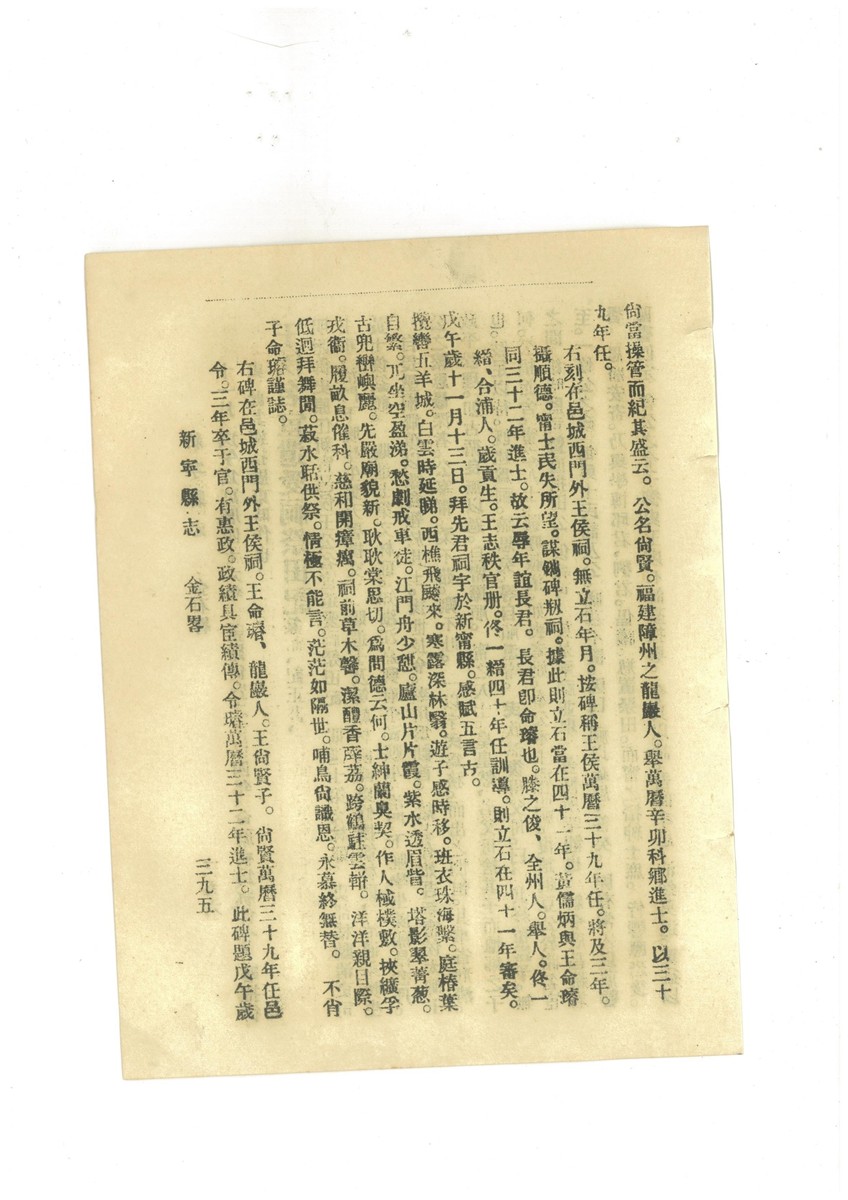 尙當操管而紀其盛云。公名尙賢。福建漳州之龍巖人。舉萬曆辛卯科鄉進士。以三十
九年任。
右刻在邑城西門外王侯祠。無立石年月。按碑稱王侯萬曆三十九年任。將及三年。
攝順德。甯士民失所望。謀鐫碑剏祠。據此則立石當在四十一年。黃儒炳與王命璿
同三十二年進士。故云辱年誼長君。長君卽命璿也。滕之俊、全州人。舉人。佟一
縉、合浦人。歲貢生。王志秩官册。佟一縉四十年任訓導。則立石在四十一年審矣。
也。
戊午歲十一月十三日。拜先君祠宇於新甯縣。感賦五言古。
攬轡五羊城。白雲時延睇。西樵飛颸來。寒露深林翳。遊子感時移。班衣珠海繫。庭椿葉
自繁。兀坐空盈涕。愁劇戒車徒。江門舟少憇。廬山片片霞。紫水透眉眥。塔影翠菁葱。
古兜巒嶼麗。先嚴廟貌新。耿耿棠思切。爲問德云何。士紳蘭臭契。作人棫樸敷。挾纊孚
戎衞。履畝息催科。慈和開瘴癘。祠前草木馨。潔醴香薜荔。跨鶴駐雲軿。洋洋親目際。
低迴拜舞閒。菽水聒供祭。情極不能言。茫茫如隔世。哺鳥尙讖恩。永慕終無替。不肖
子命璿謹誌。
右碑在邑城西門外王侯祠。王命璿、龍巖人。王尙賢子。尙賢萬曆三十九年任邑
令。三年卒于官。有惠政。政績具宦績傳。令璿萬曆三十二年進士。此碑題戊午歲
新甯縣志 金石畧 三九五